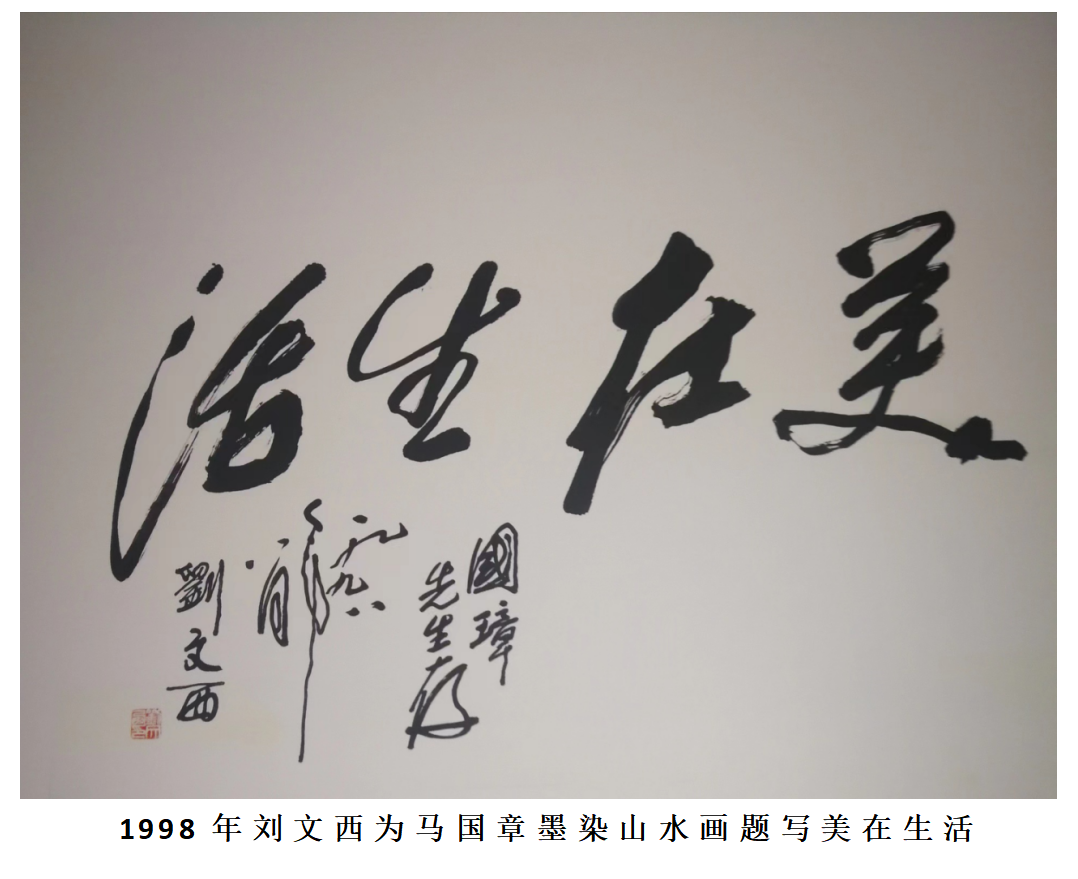 美在生活
國璋
先生存
一九九八
年
月
劉文西
1998年刘文西为马国章墨染山水画题写美在生活